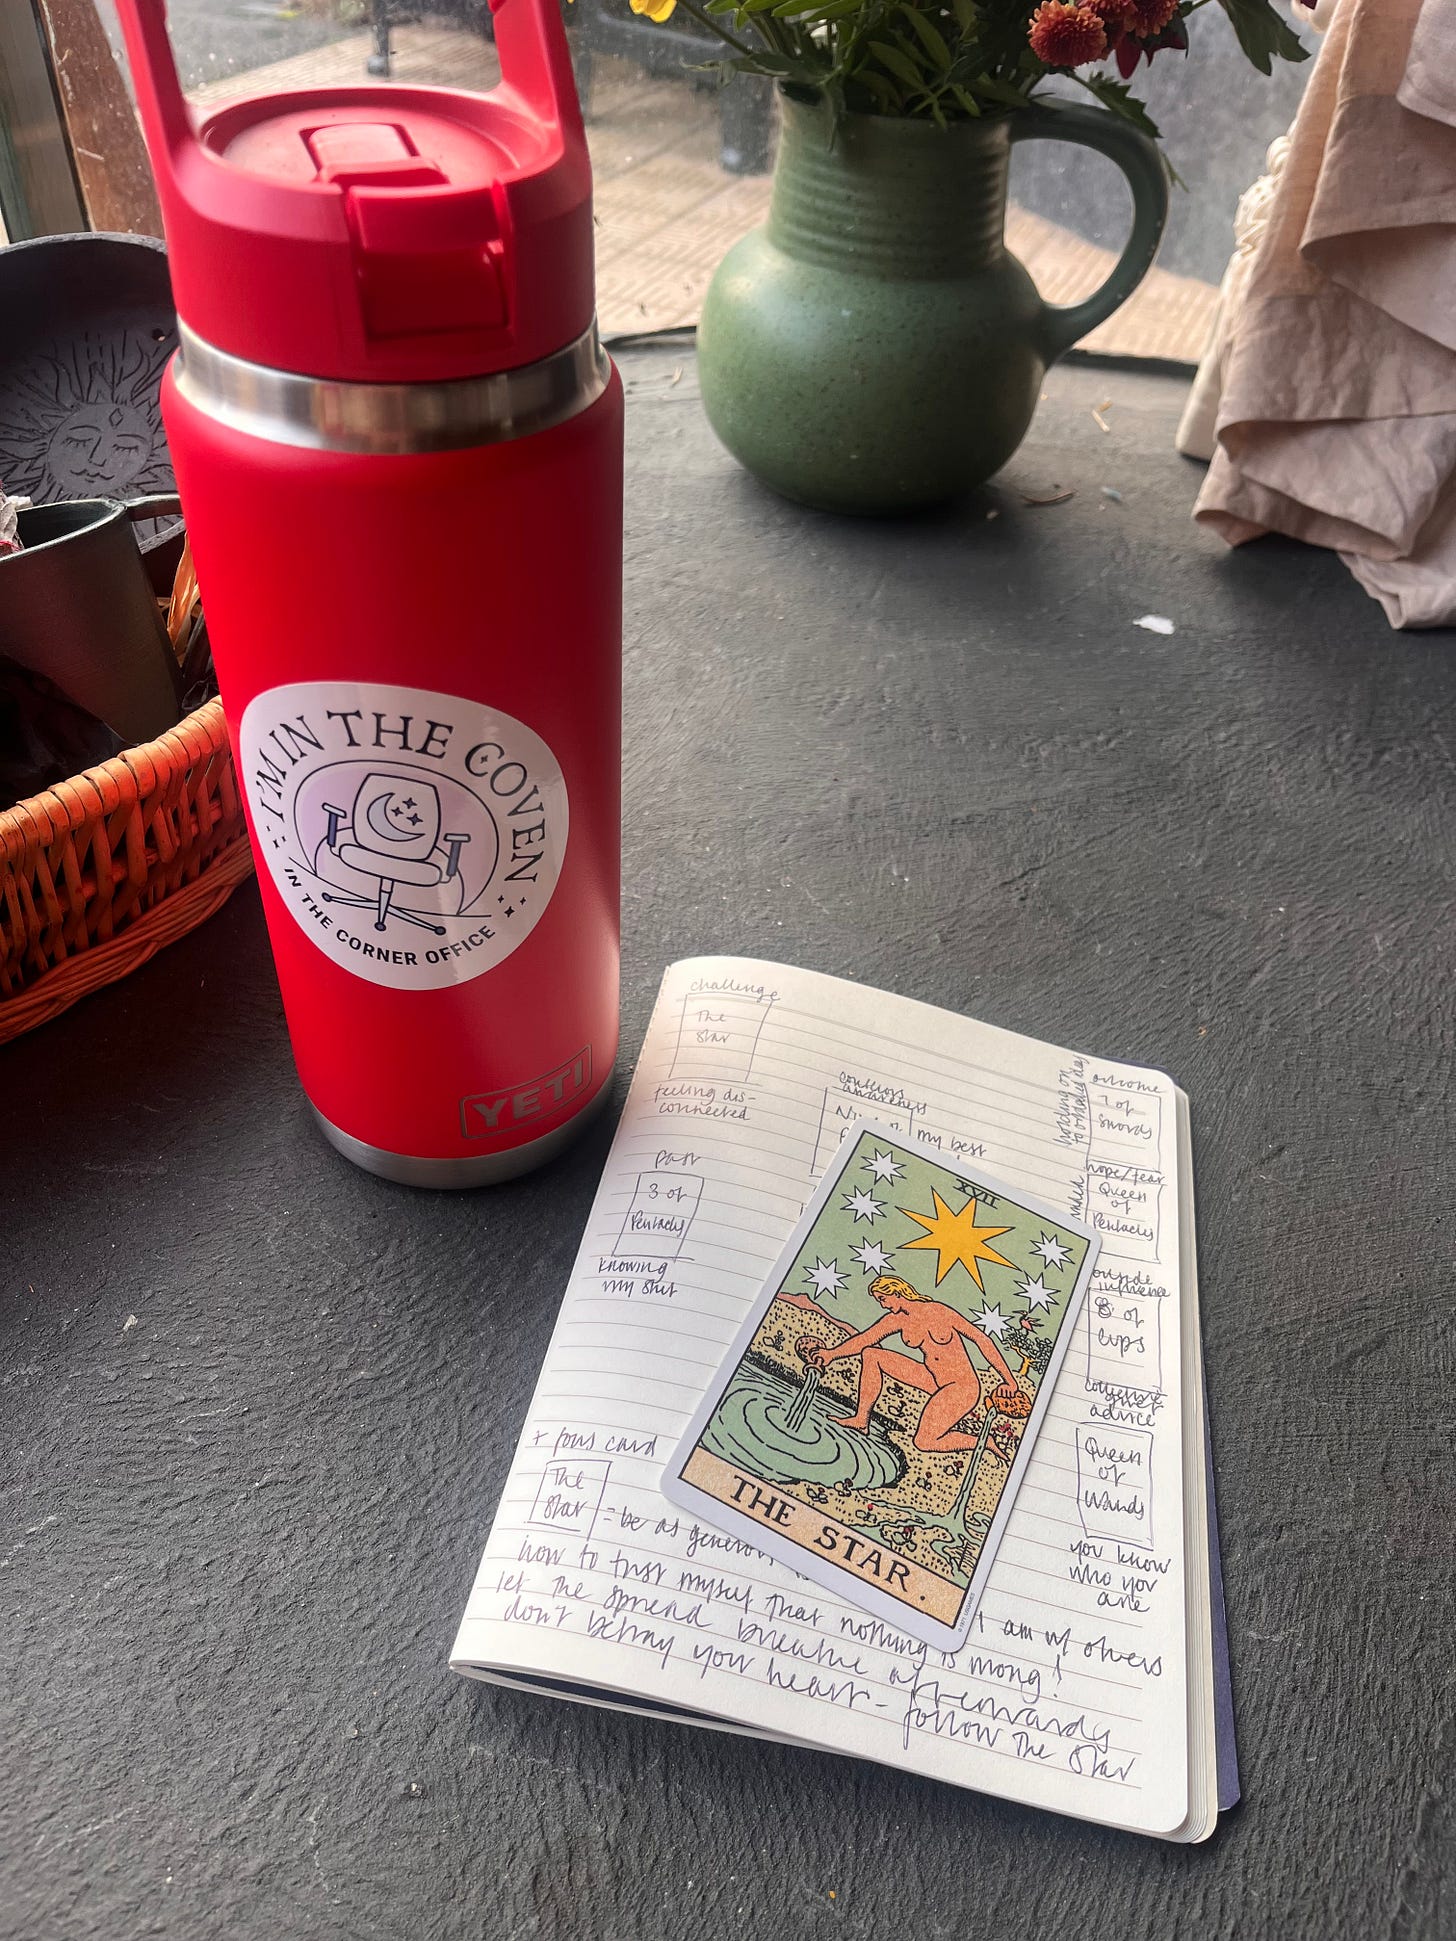 I'M IN THE COVEN
IN THE CORNER OFFICE
YETI
challenge
The
Star
feeling dis-
connected
past
3 of
Pentacles
knowing
my shit
awareness
my best
outcome
7 of
Swords
holding on
hope/fear
Queen
of
Pentacles
outside
influence
8 of
Cups
advice
Queen
of
Wands
you know
who you
are
XVII
THE STAR.
+ focus card
The
Star
= be as generous
I am w/ others
how to trust myself that nothing is wrong!
let the spread breathe afterwards
don't betray your heart - follow the star